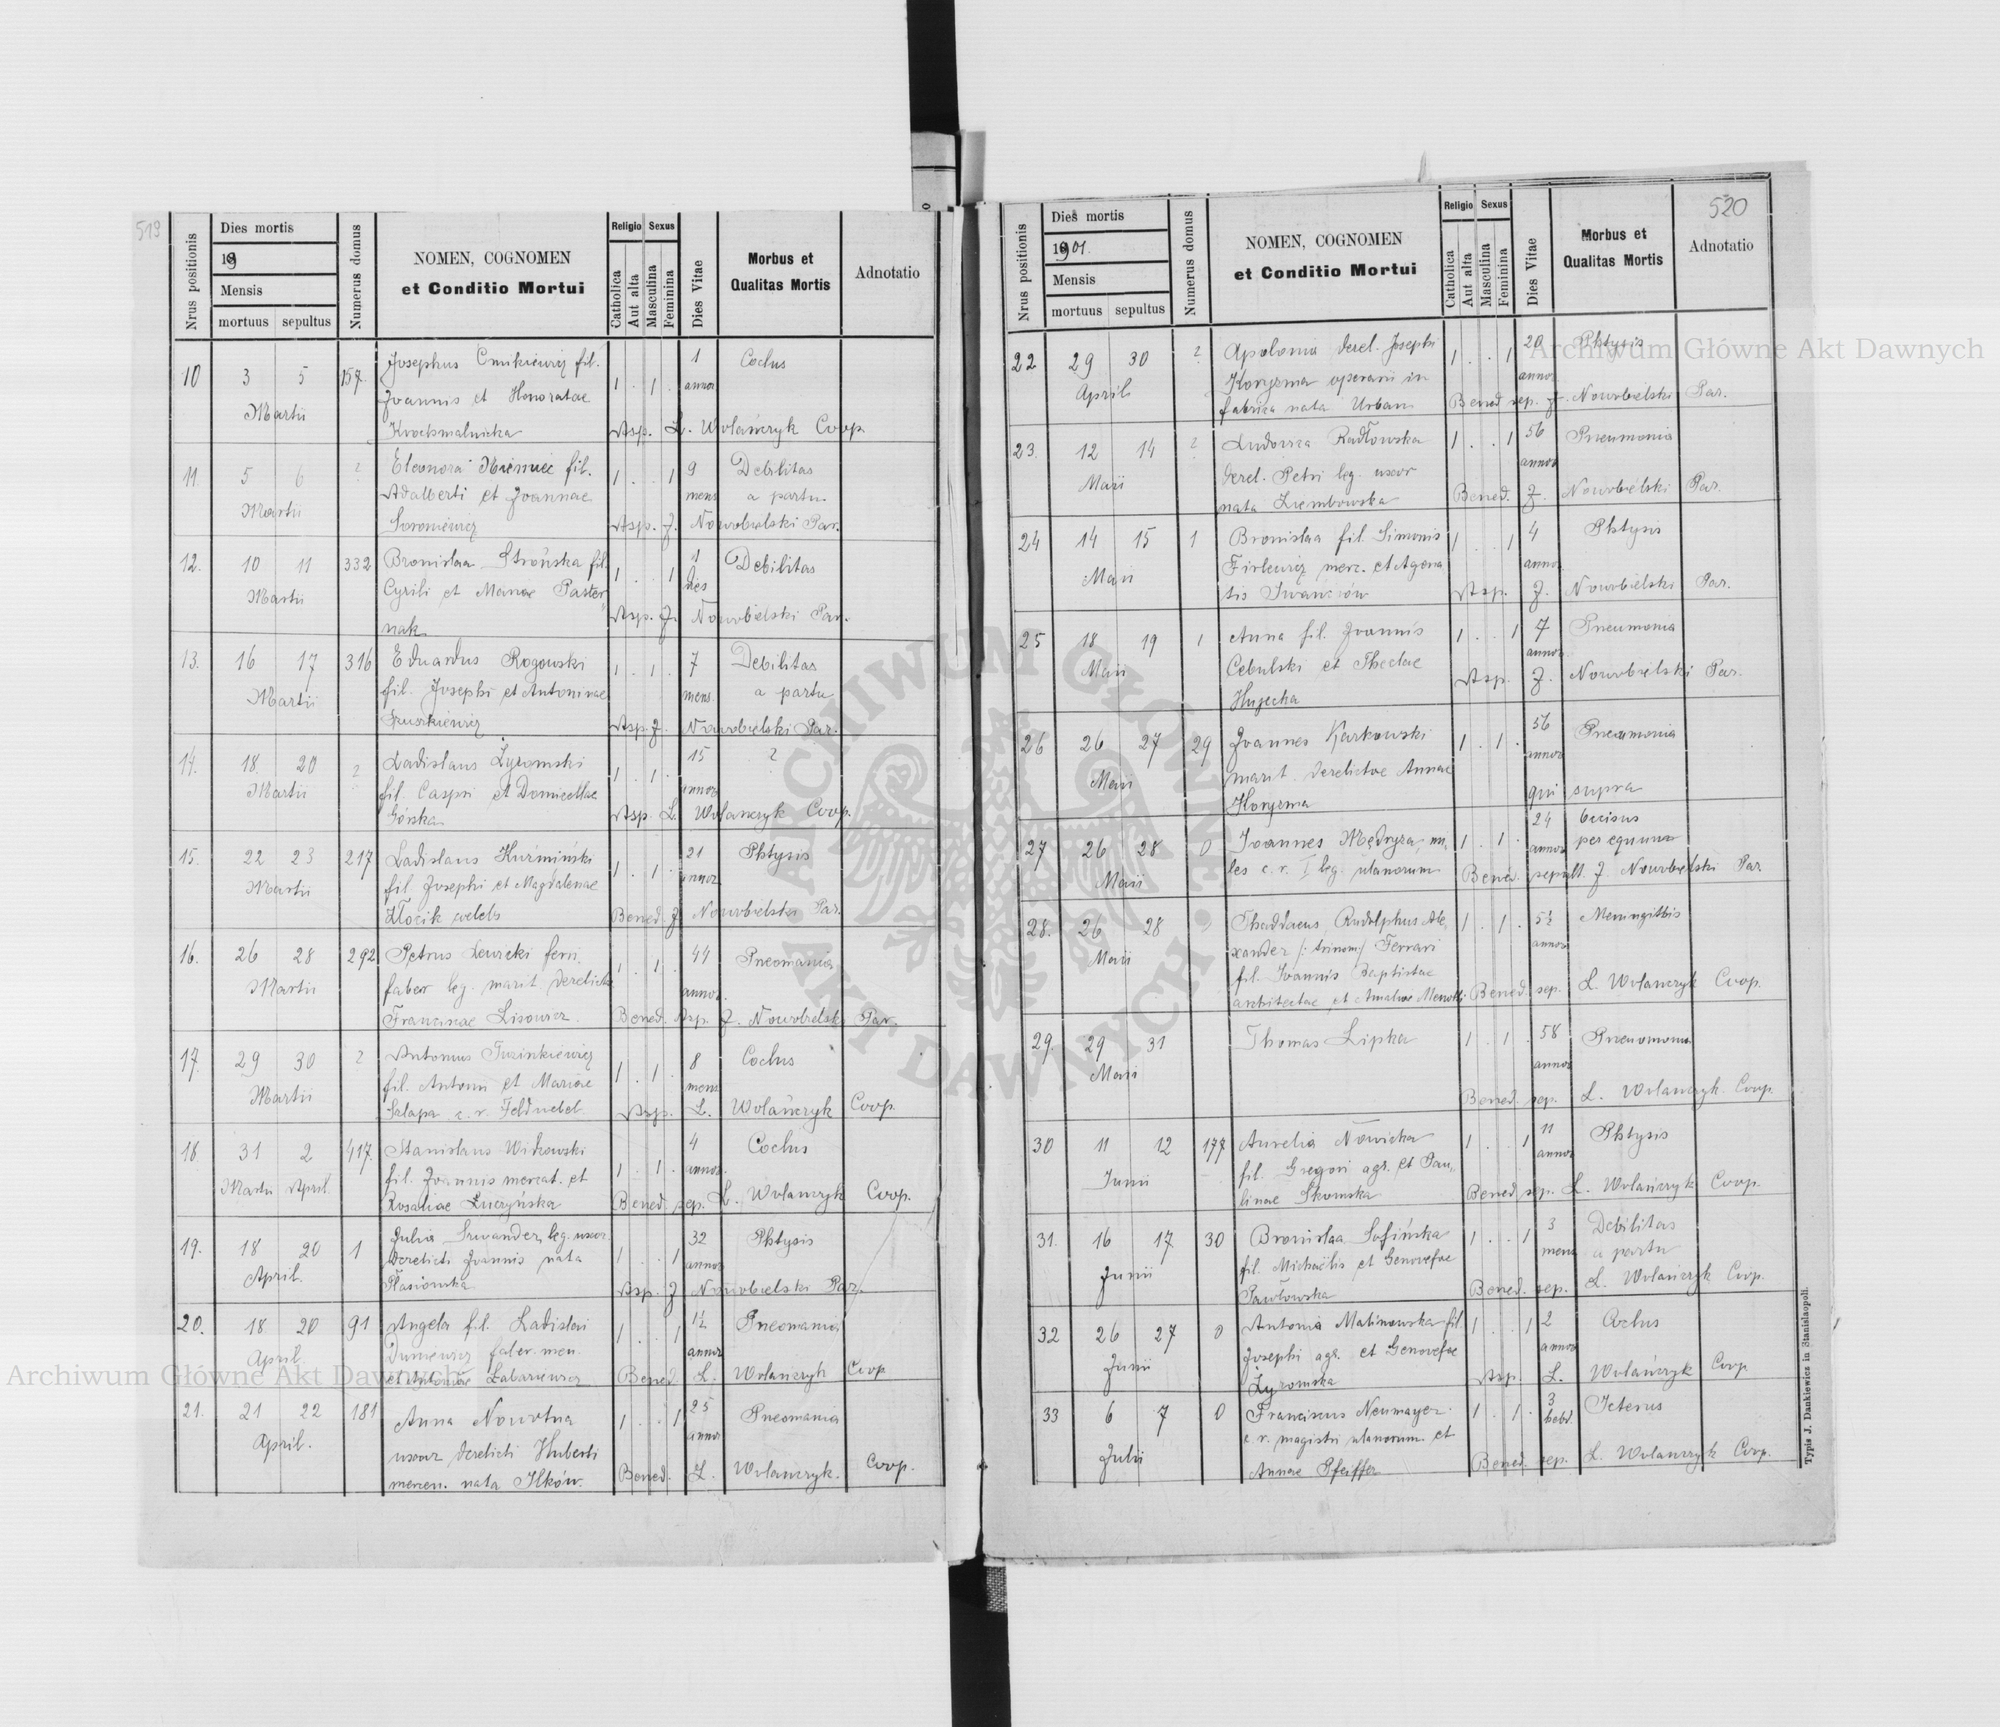 519
Nrus positionis
Dies mortis
19
Mensis
mortuus sepultus
Numerus domus
NOMEN, COGNOMEN
et Conditio Mortui
Religio Sexus
Catholica
Aut alta
Masculina
Feminina
Dies Vitae
Morbus et
Qualitas Mortis
Adnotatio
10 3 5 157. Josephus fil. 1 . 1 . 1 Coclus
Martii Joannis et Honoratae annor
Asp. L. Wolańczyk Coop.
11. 5 6 ? Eleonora Niemiec fil. 1 . . 1 9 Debilitas
Martii Adalberti et Joannae mens a partu
Asp. J. Nowobielski Par.
12. 10 11 332 Bronislaa Strońska fil. 1 . . 1 1 Debilitas
Martii Cyrili et Mariae Paster dies
nak Asp. J. Nowobielski Par.
13. 16 17 316 Eduardus Rogowski 1 . 1 . 7 Debilitas
Martii fil. Josephi et Antoninae mens. a partu
Asp. J. Nowobielski Par.
14. 18 20 ? Ladislaus Lyzomski 1 . 1 . 15 ?
Martii fil. Caspri et Domicellae annor
Górska Asp. L. Wolańczyk Coop.
15. 22 23 217 Ladislaus Kuźmiński 1 . 1 . 21 Phtysis
Martii fil Josephi et Magdalenae annor
Kłocik celebs Bened. J. Nowobielski Par.
16. 26 28 292 Petrus Lewicki ferri 1 . 1 . 44 Pneomania
Martii faber leg. marit derelicta annor.
Francinae Lisowicz Bened. Asp. J. Nowobielski Par.
17. 29 30 ? Antonius Tuzinkiewicz 1 . 1 . 8 Coclus
Martii fil. Antonii et Mariae mens
Szlapa c. r. Feldwebel Asp. L. Wolańczyk Coop.
18 31 2 417. Stanislaus Widzowski 1 . 1 . 4 Coclus
Martii April. fil. Joannis mercat. et annor.
Rosaliae Łuczyńska Bened. sep. L. Wolańczyk Coop.
19. 18 20 1 Julia leg. uxor 1 . . 1 32 Phtysis
April. derelicti Joannis nata annor
Asp. J Nowobielski Par.
20. 18 20 91 Angela fil. Ladislai 1 . . 1 1½ Pneomania
April faber. annor
et Antoniae Bened. L. Wolańczyk Coop
21. 21 22 181 Anna Nowotna 1 . . 1 25 Pneomania
April. uxor derelicti Huberti annor
nata Ilków. Bened. L. Wolańczyk. Coop.
520
Nrus positionis
Dies mortis
1901.
Mensis
mortuus sepultus
Numerus domus
NOMEN, COGNOMEN
et Conditio Mortui
Religio Sexus
Catholica
Aut alta
Masculina
Feminina
Dies Vitae
Morbus et
Qualitas Mortis
Adnotatio
22 29 30 ? Apolonia derel. Josephi 1 . . 1 20 Phtysis
April Koryzma operarii in annor.
fabrica nata Urban Bened sep. J. Nowobielski Par.
23. 12 14 ? Ludovica Radłowska 1 . . 1 56 Pneumonia
Maii derel. Petri leg. uxor annor
nata Bened. J. Nowobielski Par.
24 14 15 1 Bronislaa fil. Simonis 1 . . 1 4 Phtysis
Maii merc. et Agna annor
tis Iwanciów Asp. J. Nowobielski Par.
25 18 19 1 Anna fil. Joannis 1 . . 1 7 Pneumonia
Maii Cebulski et Theclae annor.
Asp. J. Nowobielski Par.
26 26 27 29 Joannes Karkowski 1 . 1 . 56 Pneumonia
Maii marit. derelictae Annae annor
Koryzma qui supra
27 26 28 0 Joannes Mędryga, mi 1 . 1 . 24 occisus
Maii les c. r. I leg. ulanorum annor per equum
Bened. sepult. J Nowobielski Par.
28. 26 28 ? Thaddaeus, Rudolphus Ale 1 . 1 . 5½ Meningitis
Maii xander /: trinom/ Ferrari annor
fil. Joannis Baptistae
architectae et Amaliae Bened. sep. L. Wolańczyk Coop.
29. 29 31 Thomas Lipka 1 . 1 . 58 Pneuomonia
Maii annor
Bened. sep. L. Wolańczyk. Coop.
30 11 12 177 Aurelia Nowicka 1 . . 1 11 Phtysis
Junii fil. Gregori agr. et Pau annor
linae Skomska Bened. sep. L. Wolańczyk Coop.
31. 16 17 30 Bronislaa Sofińska 1 . . 1 3 Debilitas
Junii fil. Michaëlis et Genovefae mens a partu
Pawłowska Bened. sep. L. Wolańczyk Coop.
32 26 27 0 Antonia Malinowska fil. 1 . . 1 2 Coclus
Junii Josephi agr. et Genovefae annor
Lyzomska Asp. L. Wolańczyk Coop
33 6 7 0 Franciscus Neumayer 1 . 1 . 3 Icterus
Julii c. r. magistri ulanorum et hebd.
Annae Pfeiffer Bened. sep. L. Wolańczyk Coop.
Typis J. Dankiewicz in Stanislaopoli.
Archiwum Główne Akt Dawnych
Archiwum Główne Akt Dawnych
ARCHIWUM GŁÓWNE · AKT DAWNYCH ·